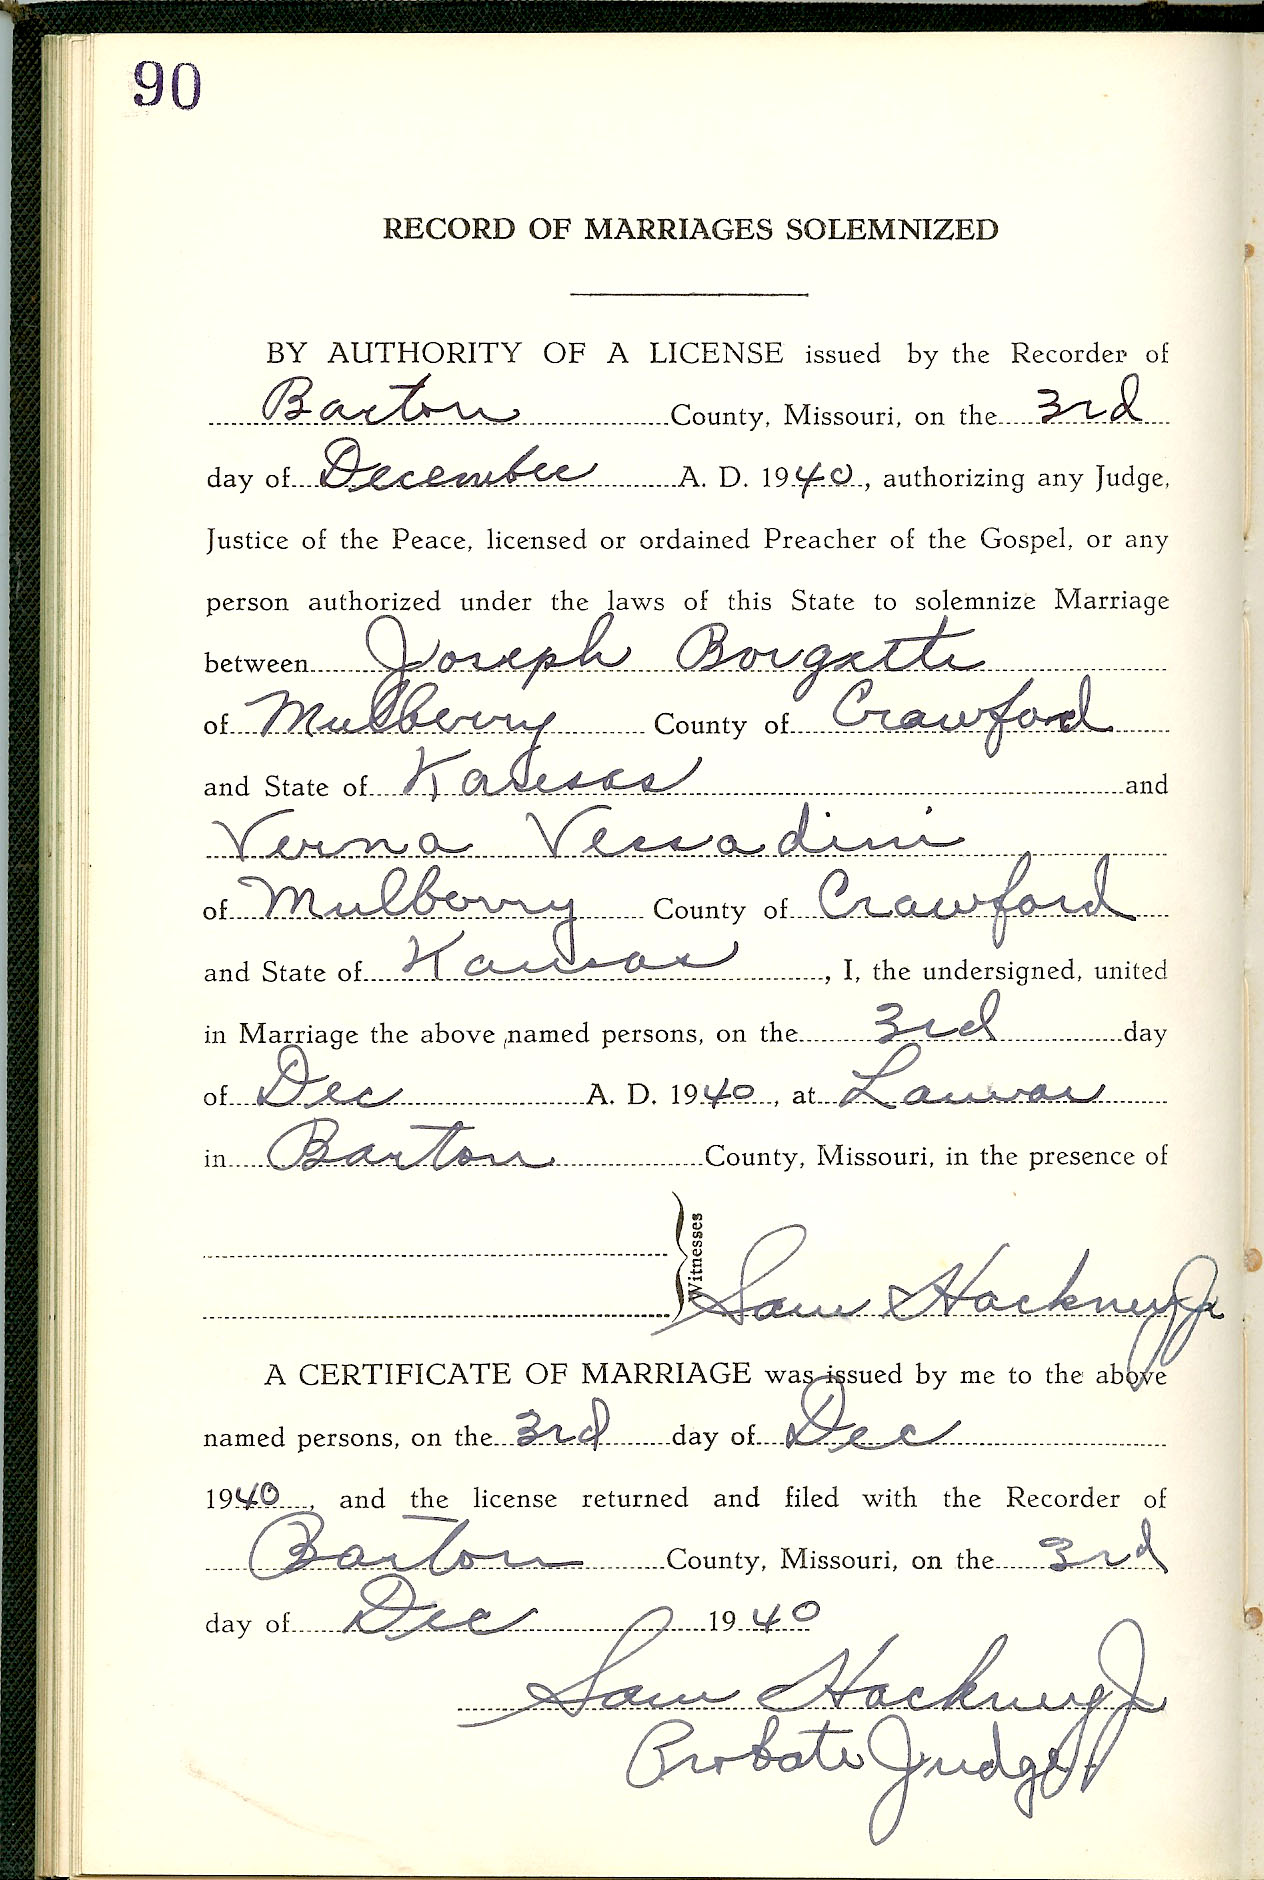 90
RECORD OF MARRIAGES SOLEMNIZED
BY AUTHORITY OF A LICENSE issued by the Recorder of
Barton County, Missouri, on the 3rd
day of December A. D. 1940, authorizing any Judge,
Justice of the Peace, licensed or ordained Preacher of the Gospel, or any
person authorized under the laws of this State to solemnize Marriage
between Joseph Borgatti
of Mulberry County of Crawford
and State of Kansas and
Verna
of Mulberry County of Crawford
and State of Kansas, I, the undersigned, united
in Marriage the above named persons, on the 3rd day
of Dec A. D. 1940, at Lamar
in Barton County, Missouri, in the presence of
Witnesses
Sam Hackney Jr
A CERTIFICATE OF MARRIAGE was issued by me to the above
named persons, on the 3rd day of Dec
1940, and the license returned and filed with the Recorder of
Barton County, Missouri, on the 3rd
day of Dec 1940
Sam Hackney Jr
Probate Judge